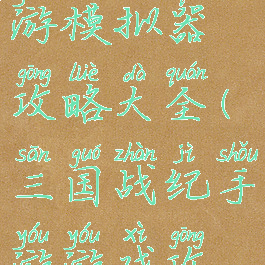 游模拟器
gōng lüè dà quán
攻略大全(
sān guó zhàn jì shǒu
三国战纪手
yóu yóu xì gōng
游游戏攻